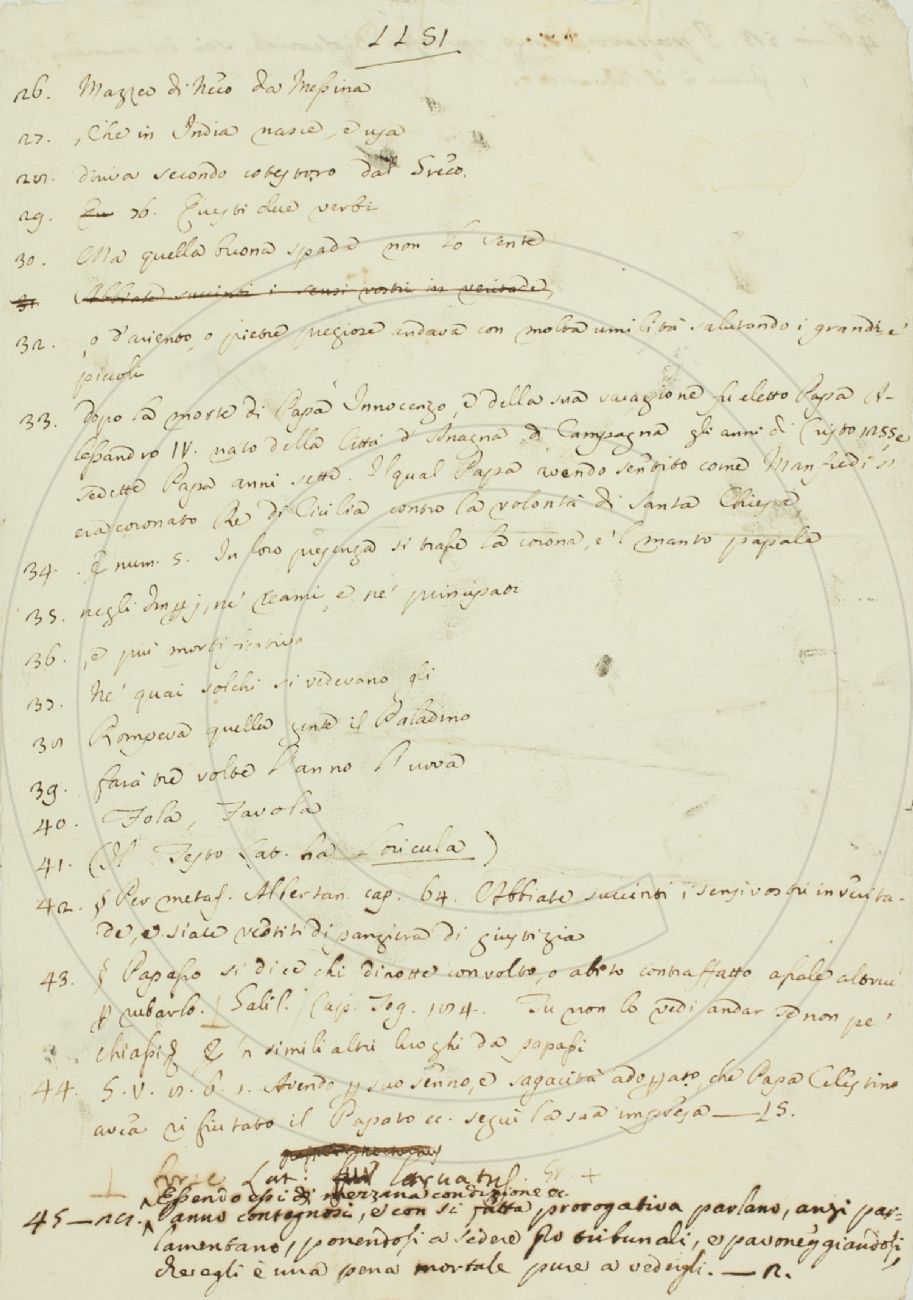 26. Mazzeo di Ricco da Messina
27. , Che in India nasce, e usa
28. diviva secondo cotestoro dal Greco.
29. 76. Questi due verbi
30. Ma quella buona spada non lo sente
31. Abbiate succinti i sensi vostri in veritade,
32. , o d'ariento, o pietre preziose andava con molta umilità salutando i grandi e'
piccoli
33. dopo la morte di Papa Innocenzo, e della sua vacazione fu eletto Papa A-
lessandro IV. nato della Città d'Anagna di Campagna gli anni di Cristo 1255 e
sedette Papa anni sette. Il qual Papa avendo sentito come Manfredi si
era coronato Re di Cicilia contro la volontà di Santa Chiesa,
34. E num. 5. In loro presenza si trasse la corona, e 'l manto papale
35. negli Impj, ne' reami, e ne' principati
36. , e più mortificativo
37. Nè quai solchi si vedevano gli
38 Rompeva quella gente il Paladino
39. farà tre volte l'anno l'uova
40. Fola, Favola
41. (Il Testo Lat. ha Loricula)
42. § Per metaf. Albertan. cap. 64. Abbiate succinti i sensi vostri in verita-
de, e siate vestiti di panziera di giustizia
43. § Papasso si dice chi di notte con volto, o abito contraffatto assale altrui
p rubarlo. Salil. Cap. Tog. 184. Tu non lo vedi andar se non pe'
chiassi E 'n simili altri luoghi da papassi
44. G. V. 8. 6. 1. Avendo p suo senno, e sagacità adoprato, che Papa Celestino
avea rifiutato il Papato ec. seguì la sua impresa — LS.
Lat. larvatus. Gr. +
Essendo essi di mezzana condizione ec.
45 — vanno contegnosi, e con sì fatta prorogativa parlano, anzi par-
lamentano, ponendosi a sedere pro tribunali, e pavoneggiandosi,
che egli è una pena mortale pure a vedergli. — R.